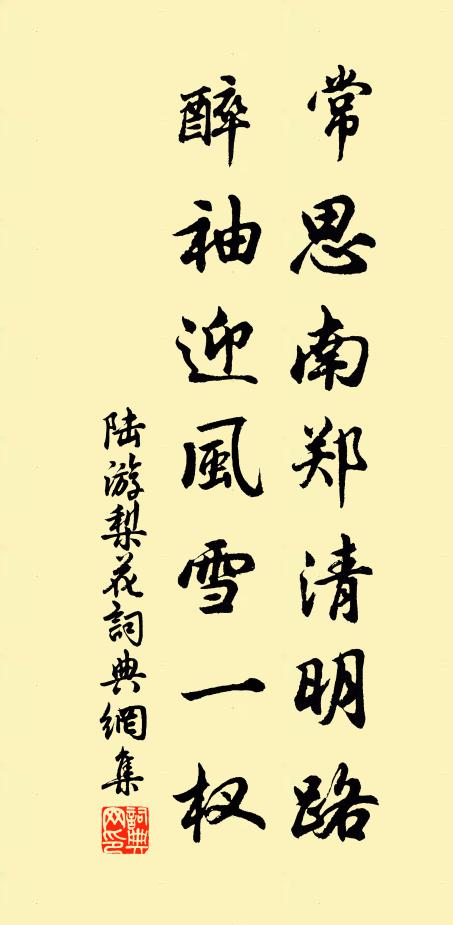 常思南郑清明路
醉袖迎風雪一杈
陆游梨花詞典網集
詞典网印